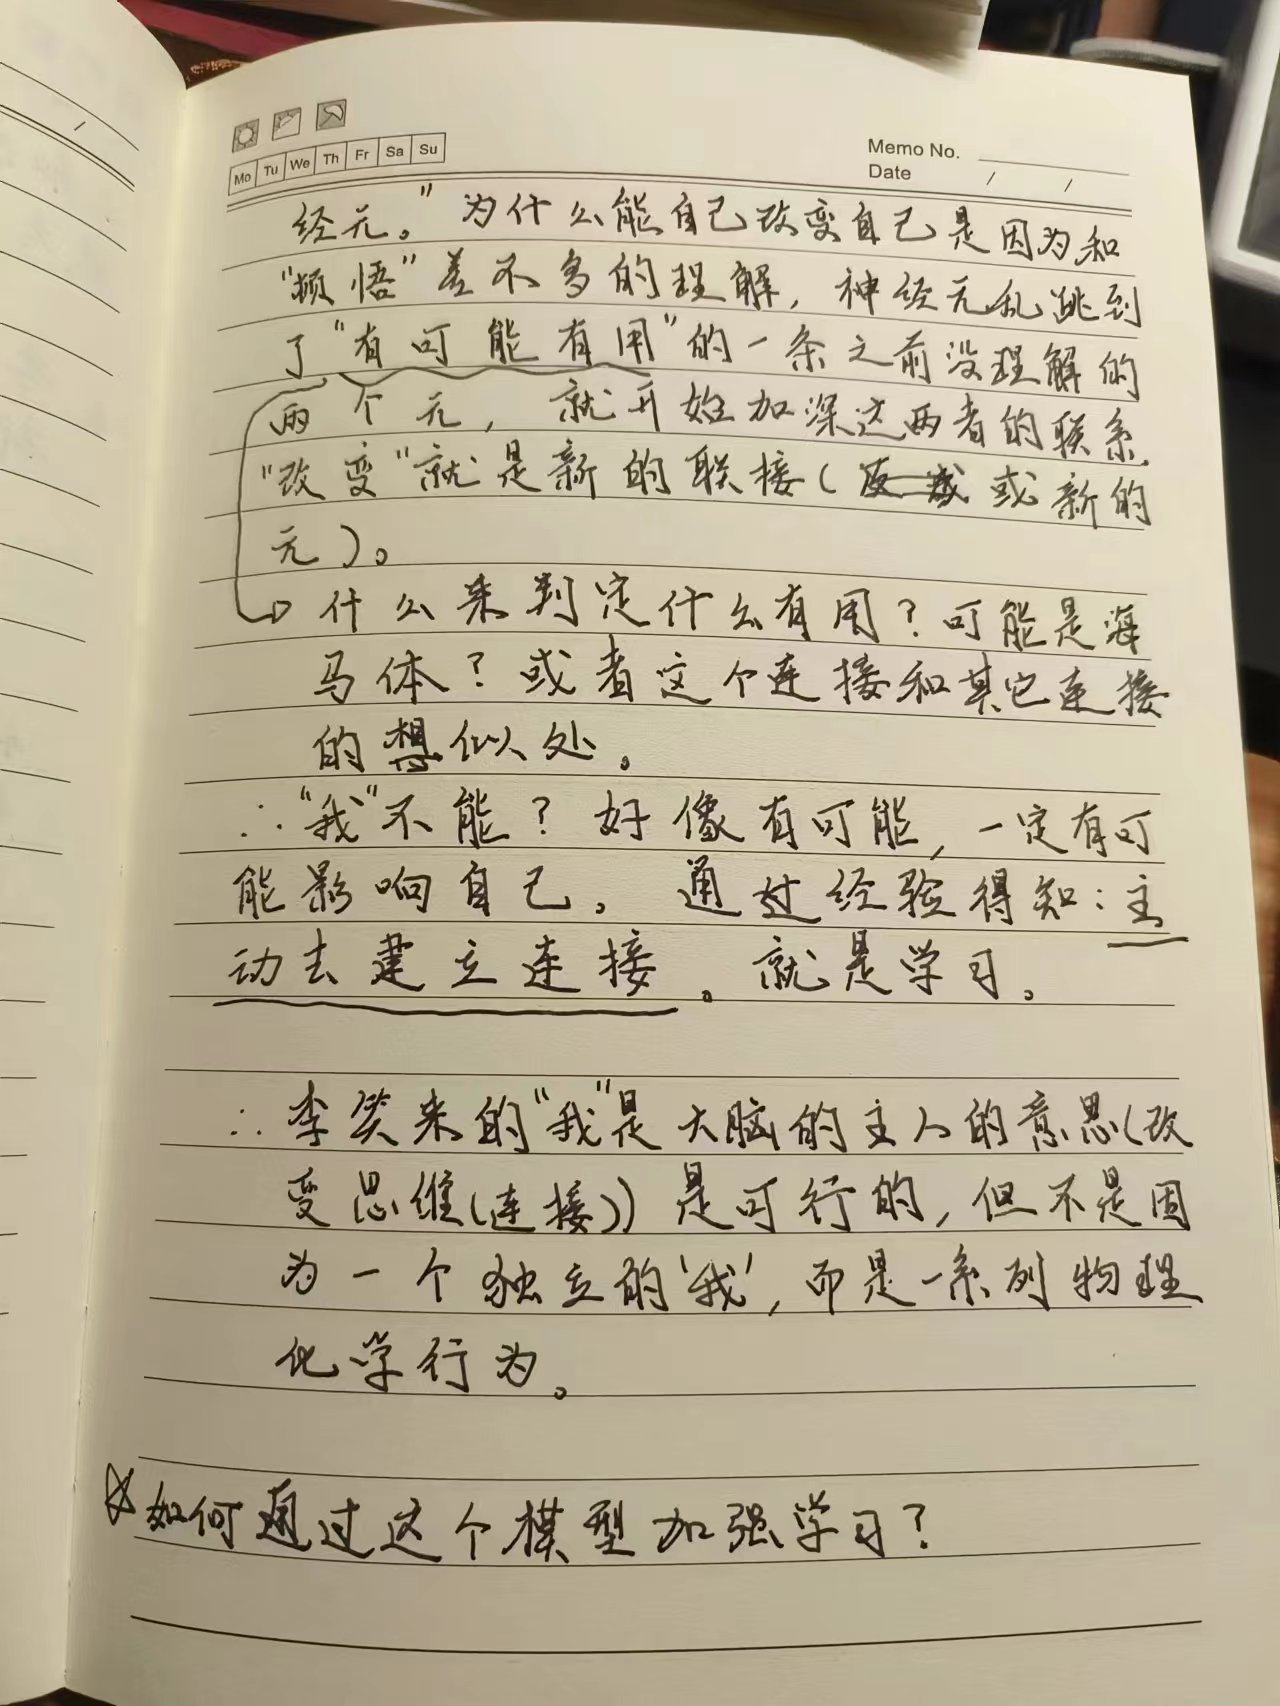 Mo Tu We Th Fr Sa Su
Memo No.
Date / /
经元。"为什么能自己改变自己是因为和
"顿悟"差不多的理解，神经元乱跳到
了"有可能有用"的一条之前没理解的
两个元，就开始加深这两者的联系.
"改变"就是新的联接（或新的
元）。
什么来判定什么有用？可能是海
马体？或者这个连接和其它连接
的想似处。
∴"我"不能？好像有可能，一定有可
能影响自己。通过经验得知：主
动去建立连接。就是学习。
∴李笑来的"我"是大脑的主人的意思（改
变思维（连接））是可行的，但不是因
为一个独立的'我'，而是一系列物理
化学行为。
☆如何通过这个模型加强学习？